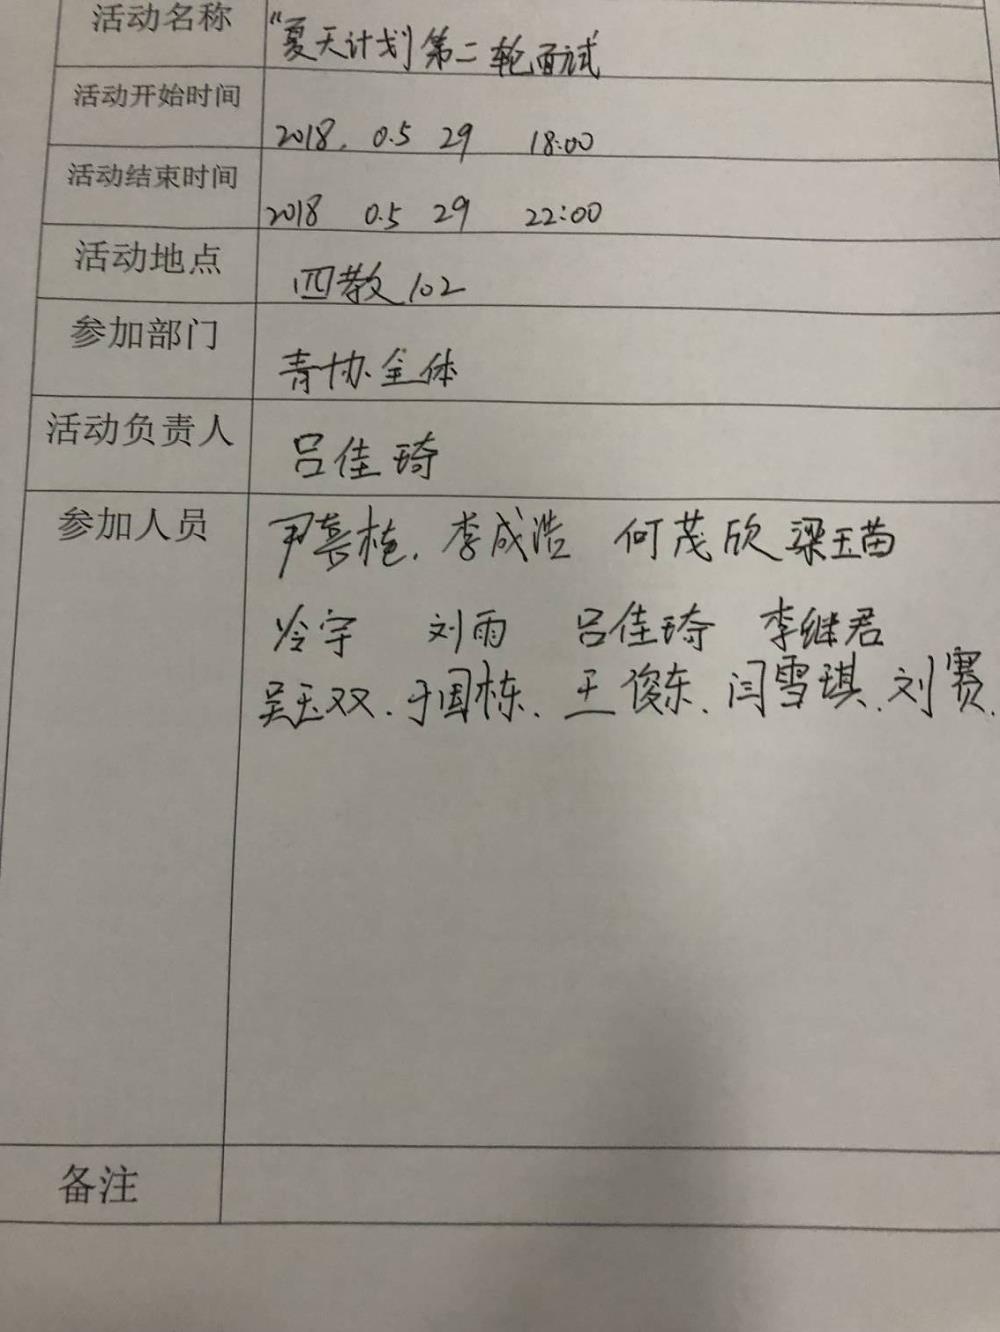 活动名称 "夏天计划第二轮面试
活动开始时间 2018. 0.5 29 18:00
活动结束时间 2018 0.5 29 22:00
活动地点 四教102
参加部门 青协全体
活动负责人 吕佳琦
参加人员 李成浩 何茂欣 梁玉苗
冷宇 刘雨 吕佳琦 李继君
吴玉双. 于国栋、王俊东、闫雪琪.刘赛.
备注